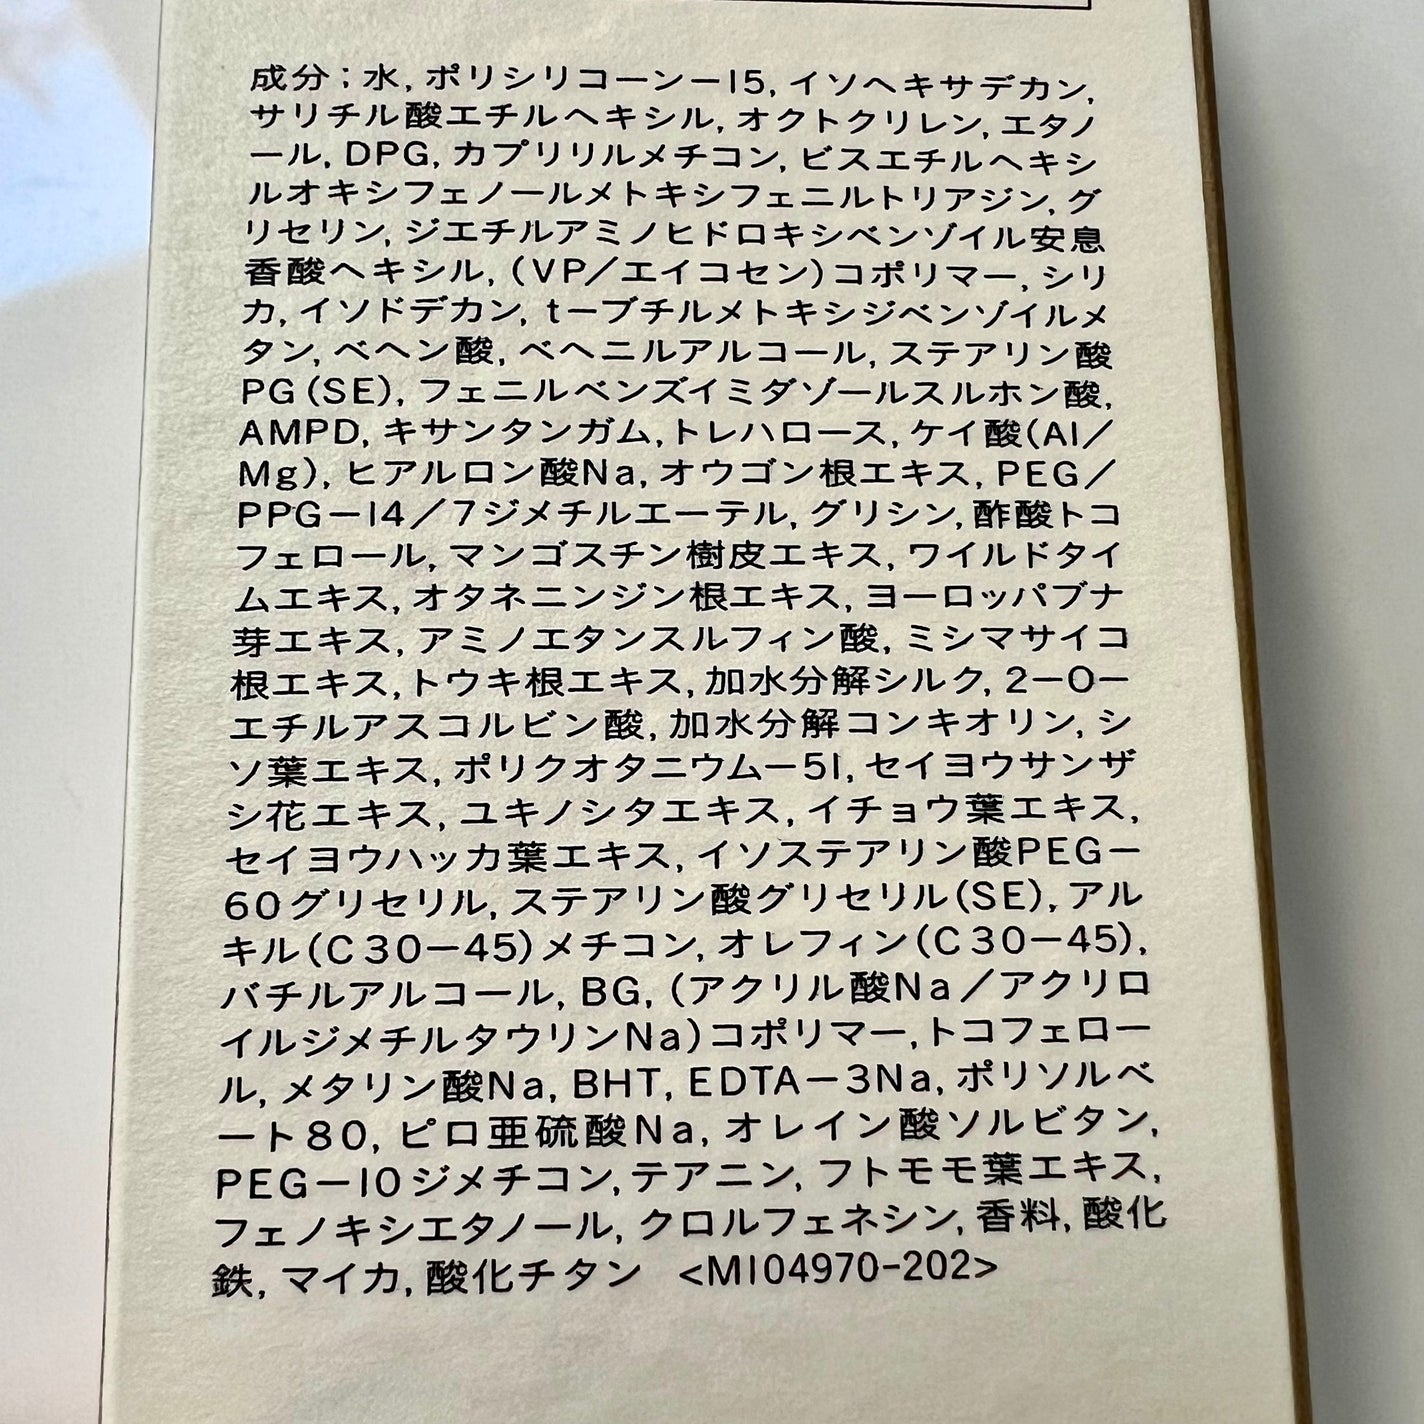 成分；水, ポリシリコーン－15, イソヘキサデカン,
サリチル酸エチルヘキシル, オクトクリレン, エタノ
ール, DPG, カプリリルメチコン, ビスエチルヘキシ
ルオキシフェノールメトキシフェニルトリアジン, グ
リセリン, ジエチルアミノヒドロキシベンゾイル安息
香酸ヘキシル, (VP／エイコセン)コポリマー, シリ
カ, イソドデカン, t－ブチルメトキシジベンゾイルメ
タン, ベヘン酸, ベヘニルアルコール, ステアリン酸
PG(SE), フェニルベンズイミダゾールスルホン酸,
AMPD, キサンタンガム, トレハロース, ケイ酸(Al／
Mg), ヒアルロン酸Na, オウゴン根エキス, PEG／
PPG－14／7ジメチルエーテル, グリシン, 酢酸トコ
フェロール, マンゴスチン樹皮エキス, ワイルドタイ
ムエキス, オタネニンジン根エキス, ヨーロッパブナ
芽エキス, アミノエタンスルフィン酸, ミシマサイコ
根エキス, トウキ根エキス, 加水分解シルク, 2－O－
エチルアスコルビン酸, 加水分解コンキオリン, シ
ソ葉エキス, ポリクオタニウム－51, セイヨウサンザ
シ花エキス, ユキノシタエキス, イチョウ葉エキス,
セイヨウハッカ葉エキス, イソステアリン酸PEG－
60グリセリル, ステアリン酸グリセリル(SE), アル
キル(C30－45)メチコン, オレフィン(C30－45),
バチルアルコール, BG, (アクリル酸Na／アクリロ
イルジメチルタウリンNa)コポリマー, トコフェロー
ル, メタリン酸Na, BHT, EDTA－3Na, ポリソルベ
ート80, ピロ亜硫酸Na, オレイン酸ソルビタン,
PEG－10ジメチコン, テアニン, フトモモ葉エキス,
フェノキシエタノール, クロルフェネシン, 香料, 酸化
鉄, マイカ, 酸化チタン <M104970-202>